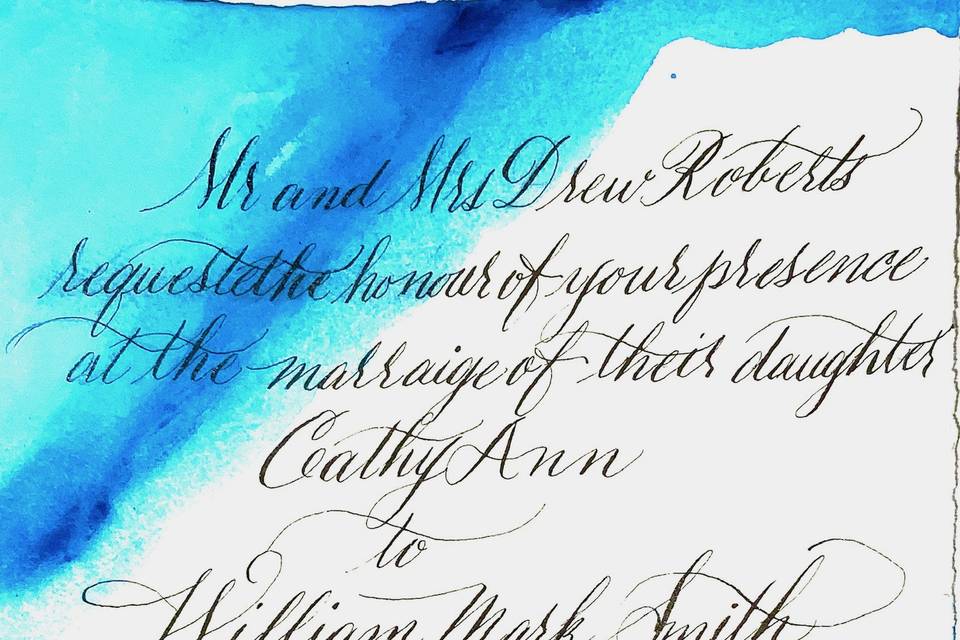 Mr and Mrs Drew Roberts
requestethe honour of your presence
at the marraige of their daughter
Cathy Ann
to
William Mark Smith